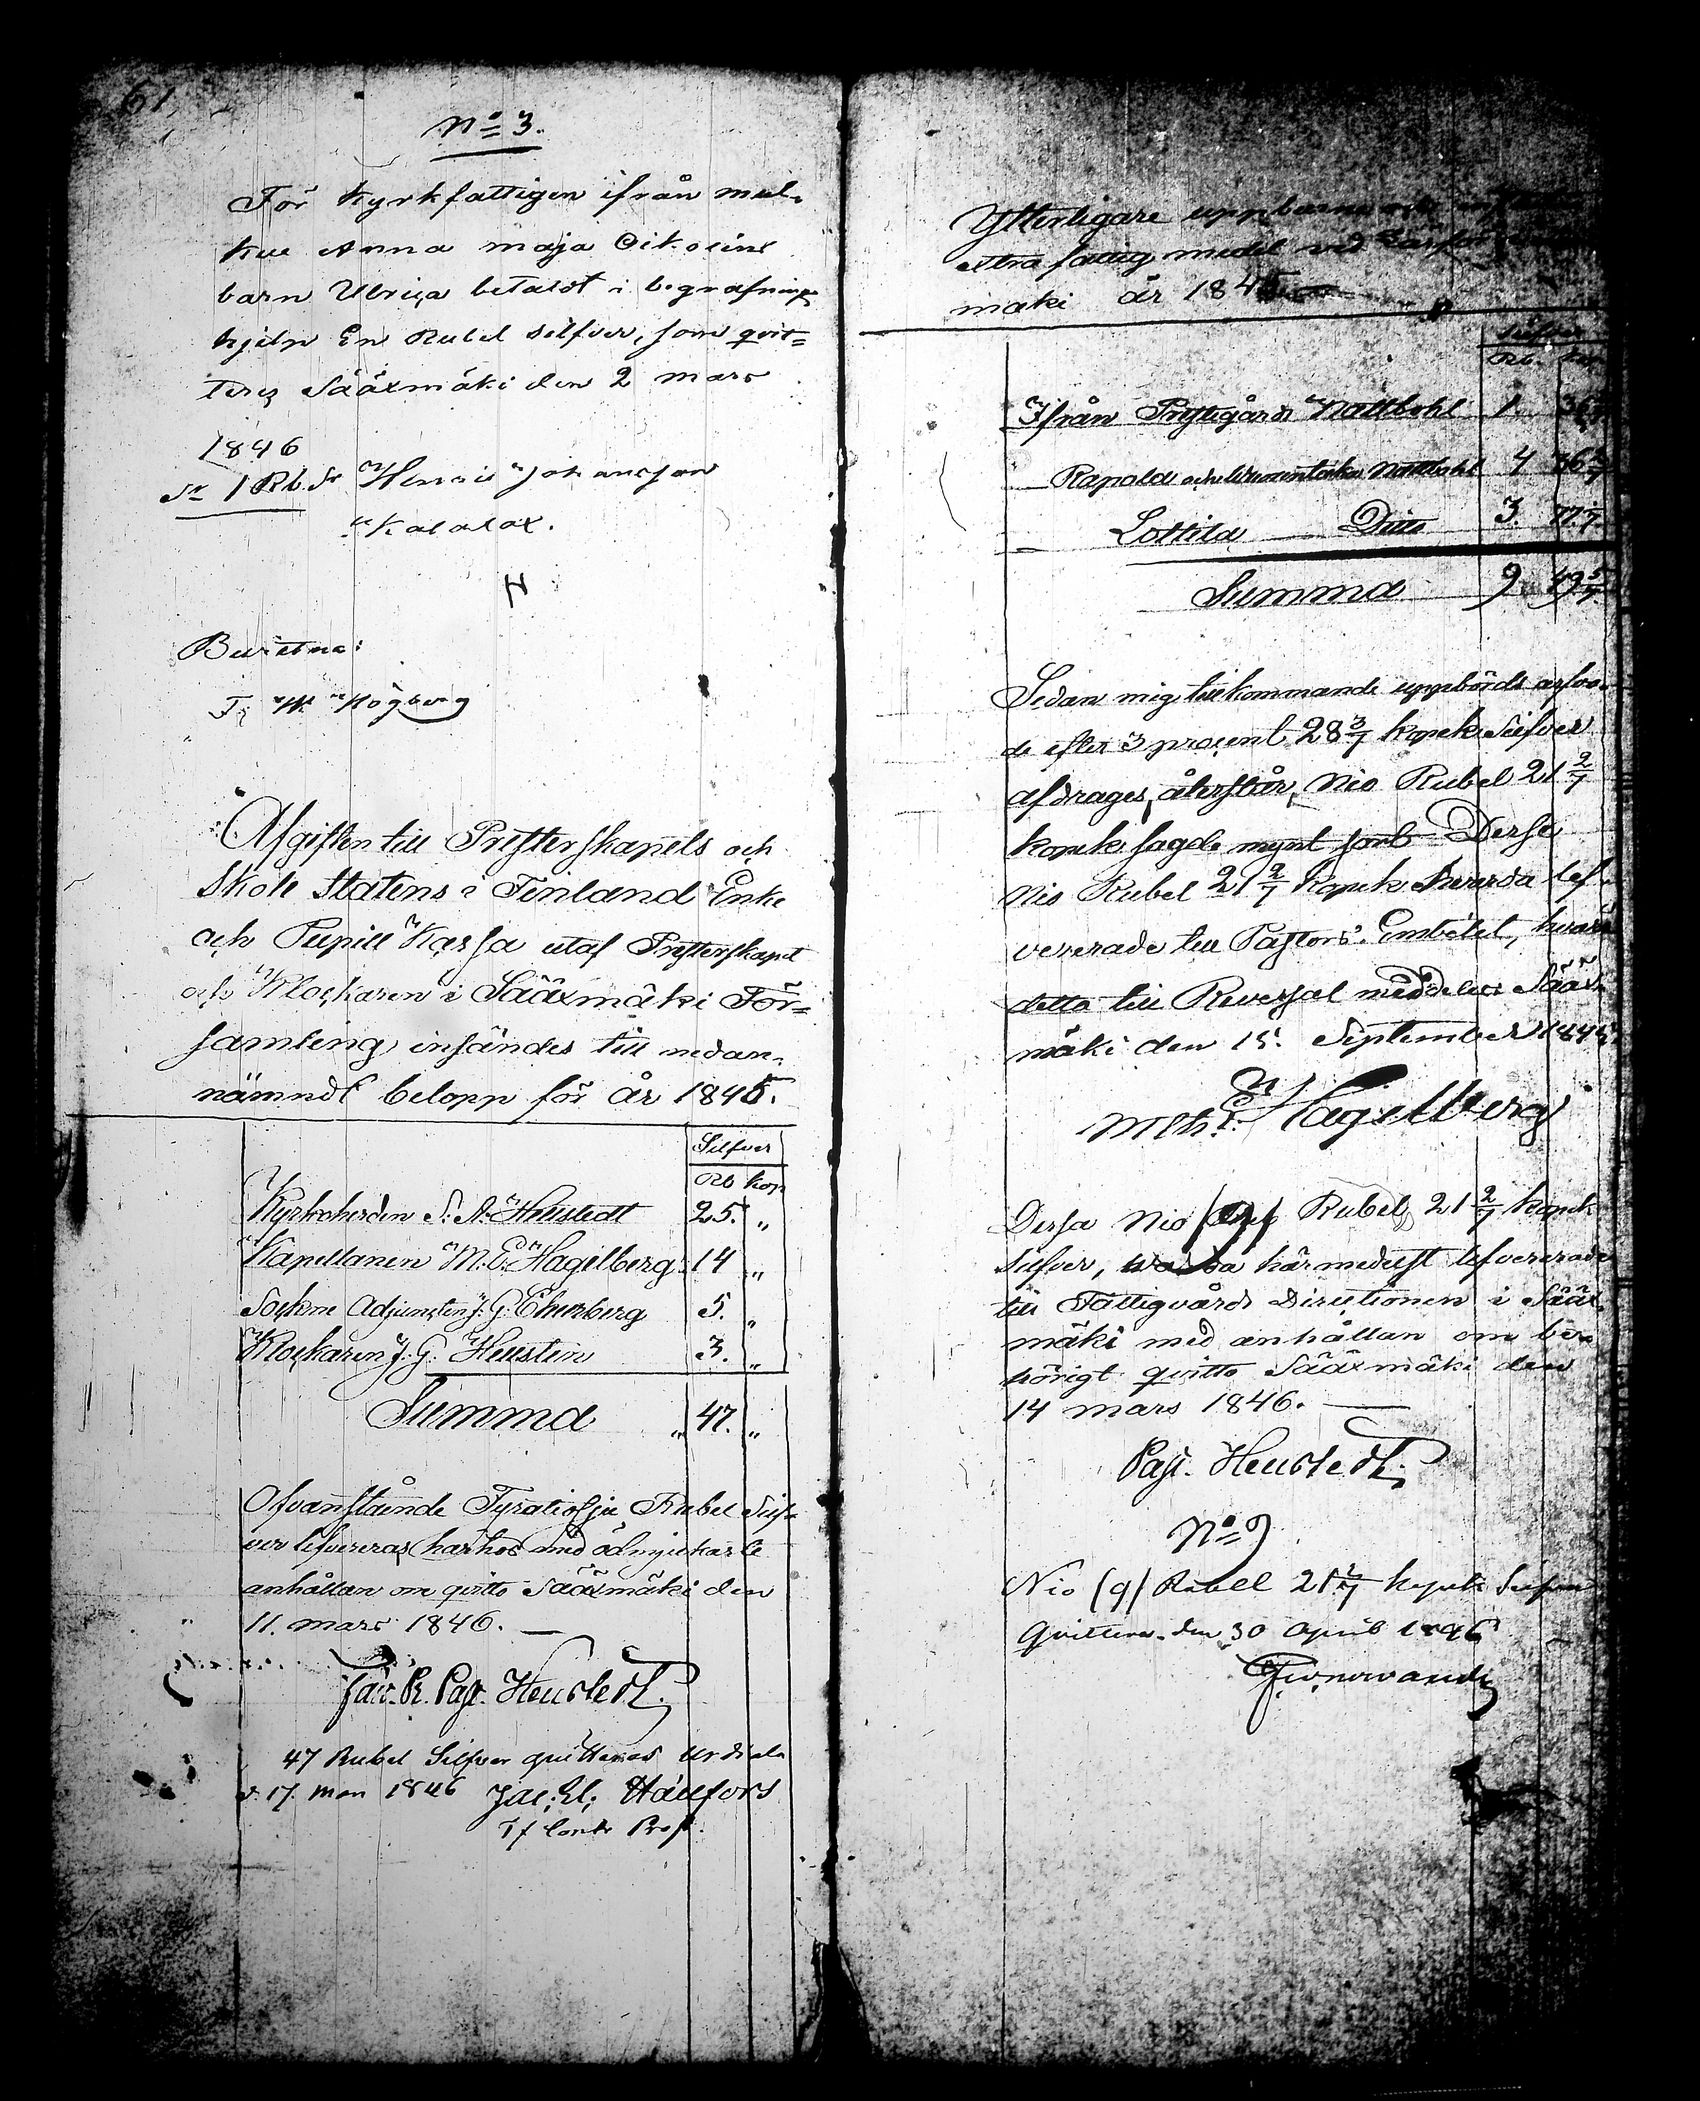 61
No 3.
För Kyrkfattigen ifrån mul-
kue Anna Maja
barn Ulrica betaldt i begrafnings
hjelp En Rubel silfver, som qvit-
teras Sääxmäki den 2 Mars
1846
Sr 1 Rb. Sr Henric Johansson
Kalalax.
H
Bevittna:
Högberg
Afgiften till Presterskapets och
Skole Statens i Finland Enke
och Pupill Kassa utaf Presterskapet
och Klockaren i Sääxmäki För=
samling, insändes till nedan-
nämndt belopp för år 1845.
Silfver
Rb kop
Kyrkoherden S. A. Heurstedt 25. "
Kapellanen M. E. Hagelberg 14 "
Sockne Adjuncten J. G. Ehrnberg 5. "
Klockaren J. G. Heusten 3. "
Summa " 47. "
Ofvanstående Fyratiosju Rubel Silf-
ver lefvereras härhos med ödmjukaste
anhållan om qvitto Sääxmäki den
11. Mars 1846.
Past. Heurstedt.
47 Rubel Silfver quitteras Urdiala
d. 17. Mars 1846 Jac. El. Hällfors
Tf Cont. Prost.
Ytterligare uppburne och
extra fattig medel vid
mäki år 1845
Silfver
Rb. kop
Ifrån Prestgårds Nattbohl 1. 36
Rapola och Nattbohl 4 36 2/7
Lottila Ditto 3. 77. 1/7
Summa 9 49 5/7
Sedan mig tillkommande uppbörds arfvo-
de efter 3 procent 28 3/7 kopek Silfver
afdrages, återstår, Nio Rubel 21 2/7
kopek sagde mynt som Dessa
Nio Rubel 21 2/7 kopek lef-
vererade till Pastors Embetet, hvarå
detta till Reversal meddelas Sääx-
mäki den 15. September 1845
M. E. Hagelberg
Dessa Nio /9/ Rubel 21 2/7 kopek
Silfver, härmedelst lefvererade
till Fattigvårds Directionen i Sääx-
mäki med anhållan om ber-
hörigt qvitto Sääxmäki den
14 Mars 1846.
Past. Heurstedt.
No 9
Nio /9/ Rubell 21 2/7 kopek Silfver
Quitteras den 30 April 1846